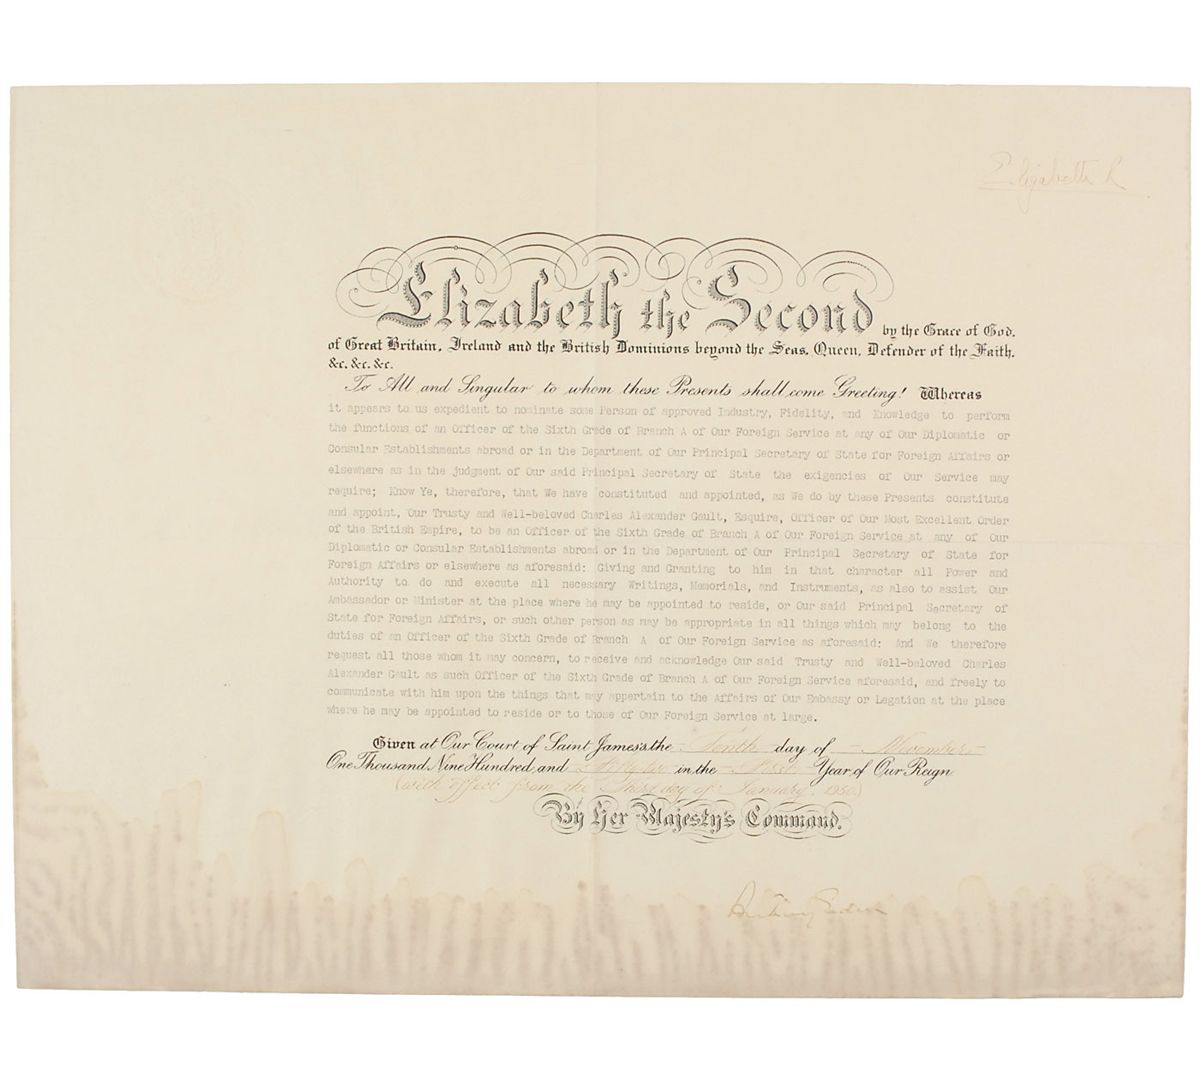 Elizabeth R
Elizabeth the Second by the Grace of God,
of Great Britain, Ireland and the British Dominions beyond the Seas, Queen, Defender of the Faith,
&c. &c. &c.
To All and Singular to whom these Presents shall come Greeting! Whereas
it appears to us expedient to nominate some Person of approved Industry, Fidelity, and Knowledge to perform
the functions of an Officer of the Sixth Grade of Branch A of Our Foreign Service at any of Our Diplomatic or
Consular Establishments abroad or in the Department of Our Principal Secretary of State for Foreign Affairs or
elsewhere as in the judgment of Our said Principal Secretary of State the exigencies of Our Service may
require; Know Ye, therefore, that We have constituted and appointed, as We do by these Presents constitute
and appoint, Our Trusty and Well-beloved Charles Alexander Gault, Esquire, Officer of Our Most Excellent Order
of the British Empire, to be an Officer of the Sixth Grade of Branch A of Our Foreign Service at any of Our
Diplomatic or Consular Establishments abroad or in the Department of Our Principal Secretary of State for
Foreign Affairs or elsewhere as aforesaid: Giving and Granting to him in that character all Power and
Authority to do and execute all necessary Writings, Memorials, and Instruments, as also to assist Our
Ambassador or Minister at the place where he may be appointed to reside, or Our said Principal Secretary of
State for Foreign Affairs, or such other person as may be appropriate in all things which may belong to the
duties of an Officer of the Sixth Grade of Branch A of Our Foreign Service as aforesaid: And We therefore
request all those whom it may concern, to receive and acknowledge Our said Trusty and Well-beloved Charles
Alexander Gault as such Officer of the Sixth Grade of Branch A of Our Foreign Service aforesaid, and freely to
communicate with him upon the things that may appertain to the Affairs of Our Embassy or Legation at the place
where he may be appointed to reside or to those of Our Foreign Service at large.
Given at Our Court of Saint James's, the Tenth day of November
One Thousand Nine Hundred and Fifty two in the First Year of Our Reign
(with effect from the First day of January, 1950)
By Her Majesty's Command.
Anthony Eden